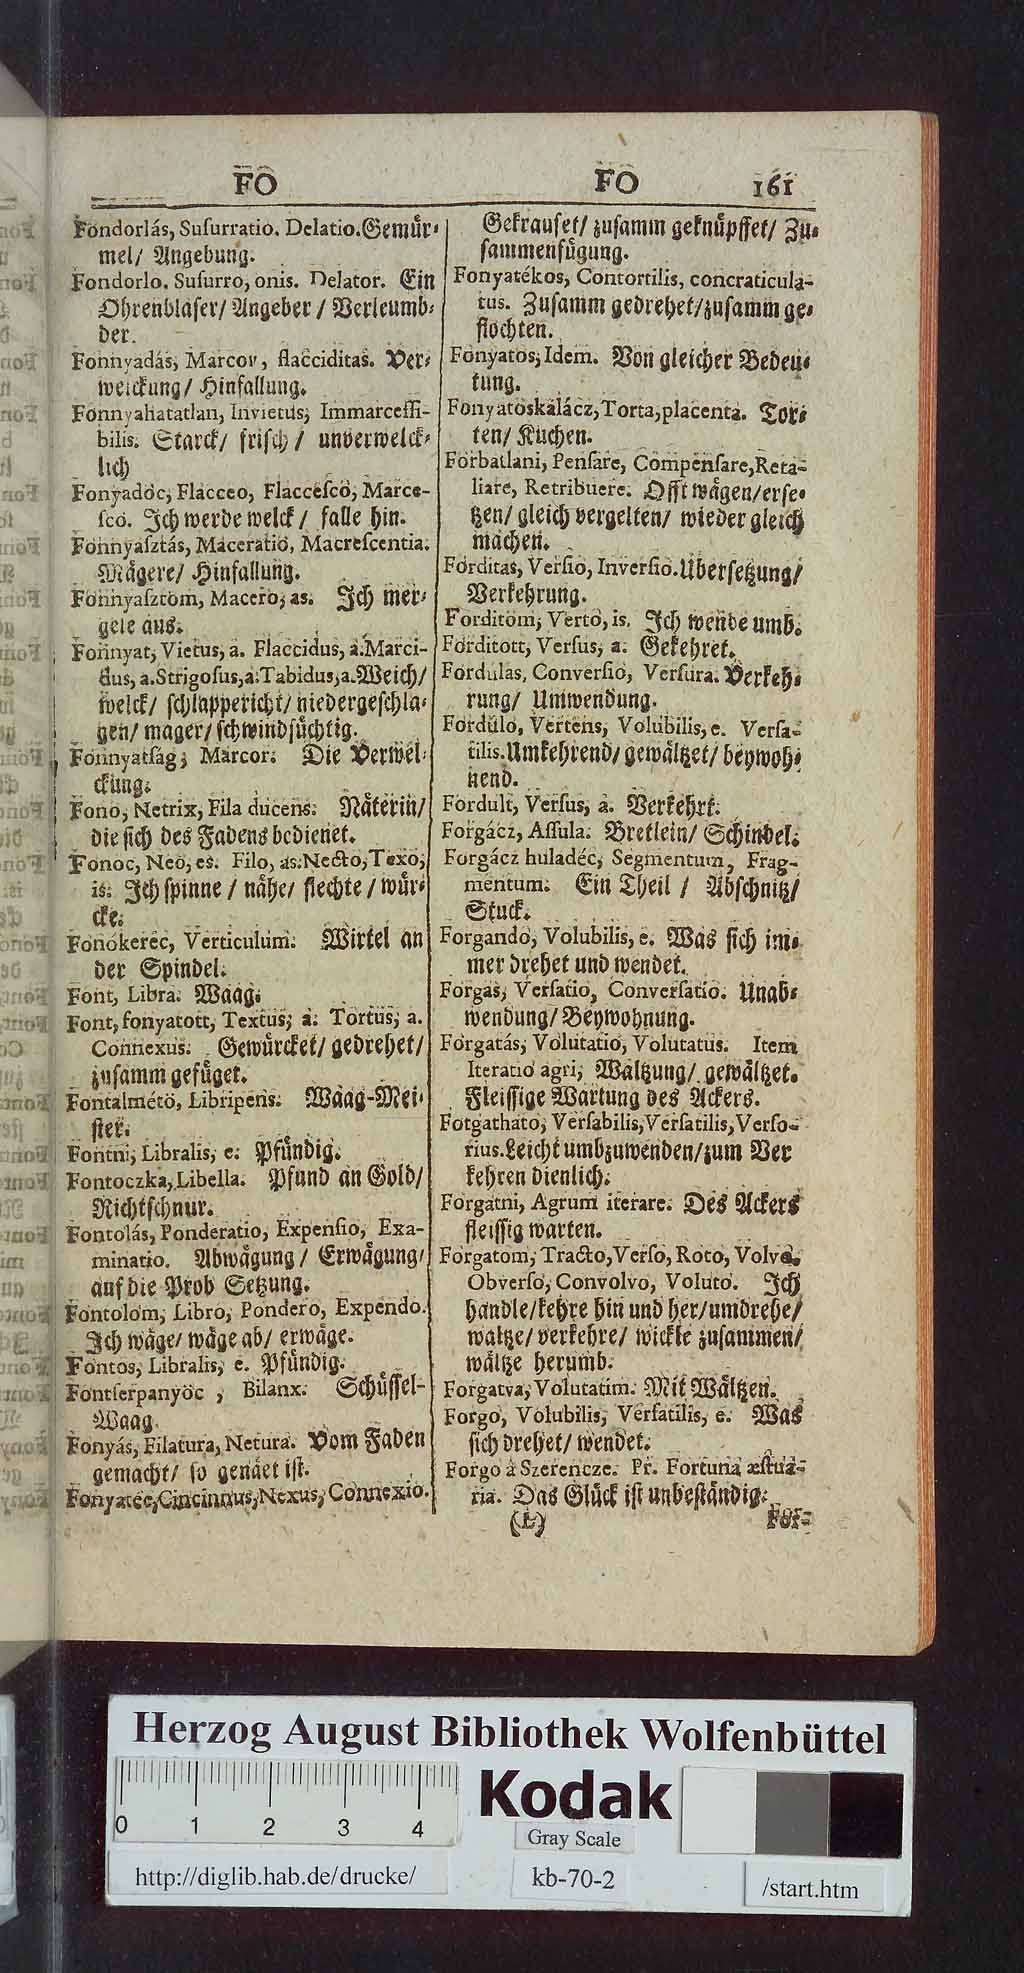 FO
FO 161
Fondorlás, Suſurratio. Delatio. Gemür⸗
mel/ Angebung.
Fondorlo. Suſurro, onis. Delator. Ein
Ohrenblaſer/ Angeber / Verleumb⸗
der.
Fonnyadás, Marcor, flacciditas. Ver⸗
welckung/ Hinfallung.
Fonnyahatatlan, Invietus, Immarceſſi-
bilis. Starck/ friſch / unverwelck⸗
lich
Fonyadóc, Flacceo, Flacceſco, Marce-
ſco. Ich werde welck / falle hin.
Fonnyaſztás, Maceratio, Macreſcentia.
Mägere/ Hinfallung.
Fonnyaſztom, Macero, as. Ich mer⸗
gele aus.
Fonnyat, Vietus, a. Flaccidus, a. Marci-
dus, a. Strigoſus, a. Tabidus, a. Weich/
welck/ ſchlappericht/ niedergeſchla⸗
gen/ mager/ ſchwindſüchtig.
Fonnyatſág, Marcor. Die Verwel⸗
ckung.
Fono, Netrix, Fila ducens. Näterin/
die ſich des Fadens bedienet.
Fonoc, Neo, es. Filo, as. Necto, Texo,
is. Ich ſpinne / nähe/ flechte / wür⸗
cke.
Fonókeréc, Verticulum. Wirtel an
der Spindel.
Font, Libra. Waag.
Font, fonyatott, Textus, a. Tortus, a.
Connexus. Gewürcket/ gedrehet/
zuſamm gefüget.
Fontalmétö, Libripens. Waag-Mei⸗
ſter.
Fontni, Libralis, e. Pfündig.
Fontoczka, Libella. Pfund an Gold/
Richtſchnur.
Fontolás, Ponderatio, Expenſio, Exa-
minatio. Abwägung / Erwägung/
auf die Prob Setzung.
Fontolom, Libro, Pondero, Expendo.
Ich wäge/ wäge ab/ erwäge.
Fontos, Libralis, e. Pfündig.
Fontſerpanyöc, Bilanx. Schüſſel-
Waag.
Fonyás, Filatura, Netura. Vom Faden
gemacht/ ſo genäet iſt.
Fonyatéc, Cincinnus, Nexus, Connexio.
Gekrauſet/ zuſamm geknüpffet/ Zu⸗
ſammenfügung.
Fonyatékos, Contortilis, concraticula-
tus. Zuſamm gedrehet/ zuſamm ge⸗
flochten.
Fonyatos, Idem. Von gleicher Bedeu⸗
tung.
Fonyatoskalácz, Torta, placenta. Tor⸗
ten/ Kuchen.
Forbatlani, Penſare, Compenſare, Reta-
liare, Retribuere. Offt wägen/ erſe⸗
tzen/ gleich vergelten/ wieder gleich
machen.
Forditas, Verſio, Inverſio. Überſetzung/
Verkehrung.
Forditom, Verto, is. Ich wende umb.
Forditott, Verſus, a. Gekehret.
Fordulas, Converſio, Verſura. Verkeh⸗
rung/ Umwendung.
Fordúlo, Vertens, Volubilis, e. Verſa-
tilis. Umkehrend/ gewältzet/ beywoh⸗
nend.
Fordult, Verſus, a. Verkehrt.
Forgácz, Aſſula. Bretlein/ Schindel.
Forgácz huladéc, Segmentum, Frag-
mentum. Ein Theil / Abſchnitz/
Stuck.
Forgando, Volubilis, e. Was ſich im⸗
mer drehet und wendet.
Forgas, Verſatio, Converſatio. Unab⸗
wendung/ Beywohnung.
Forgatás, Volutatio, Volutatus. Item
Iteratio agri, Wältzung/ gewältzet.
Fleiſſige Wartung des Ackers.
Fotgathato, Verſabilis, Verſatilis, Verſo-
rius. Leicht umbzuwenden/ zum Ver
kehren dienlich.
Forgatni, Agrum iterare. Des Ackers
fleiſſig warten.
Forgatom, Tracto, Verſo, Roto, Volvo.
Obverſo, Convolvo, Voluto. Ich
handle/ kehre hin und her/ umdrehe/
waltze/ verkehre/ wickle zuſammen/
wältze herumb.
Forgatva, Volutatim. Mit Wältzen.
Forgo, Volubilis, Verſatilis, e. Was
ſich drehet/ wendet.
Forgo à Szerencze. Pr. Fortuna æſtua-
ria. Das Glück iſt unbeſtändig.
(L)
For-
Herzog August Bibliothek Wolfenbüttel
0 1 2 3 4
Kodak
Gray Scale
http://diglib.hab.de/drucke/
kb-70-2
/start.htm